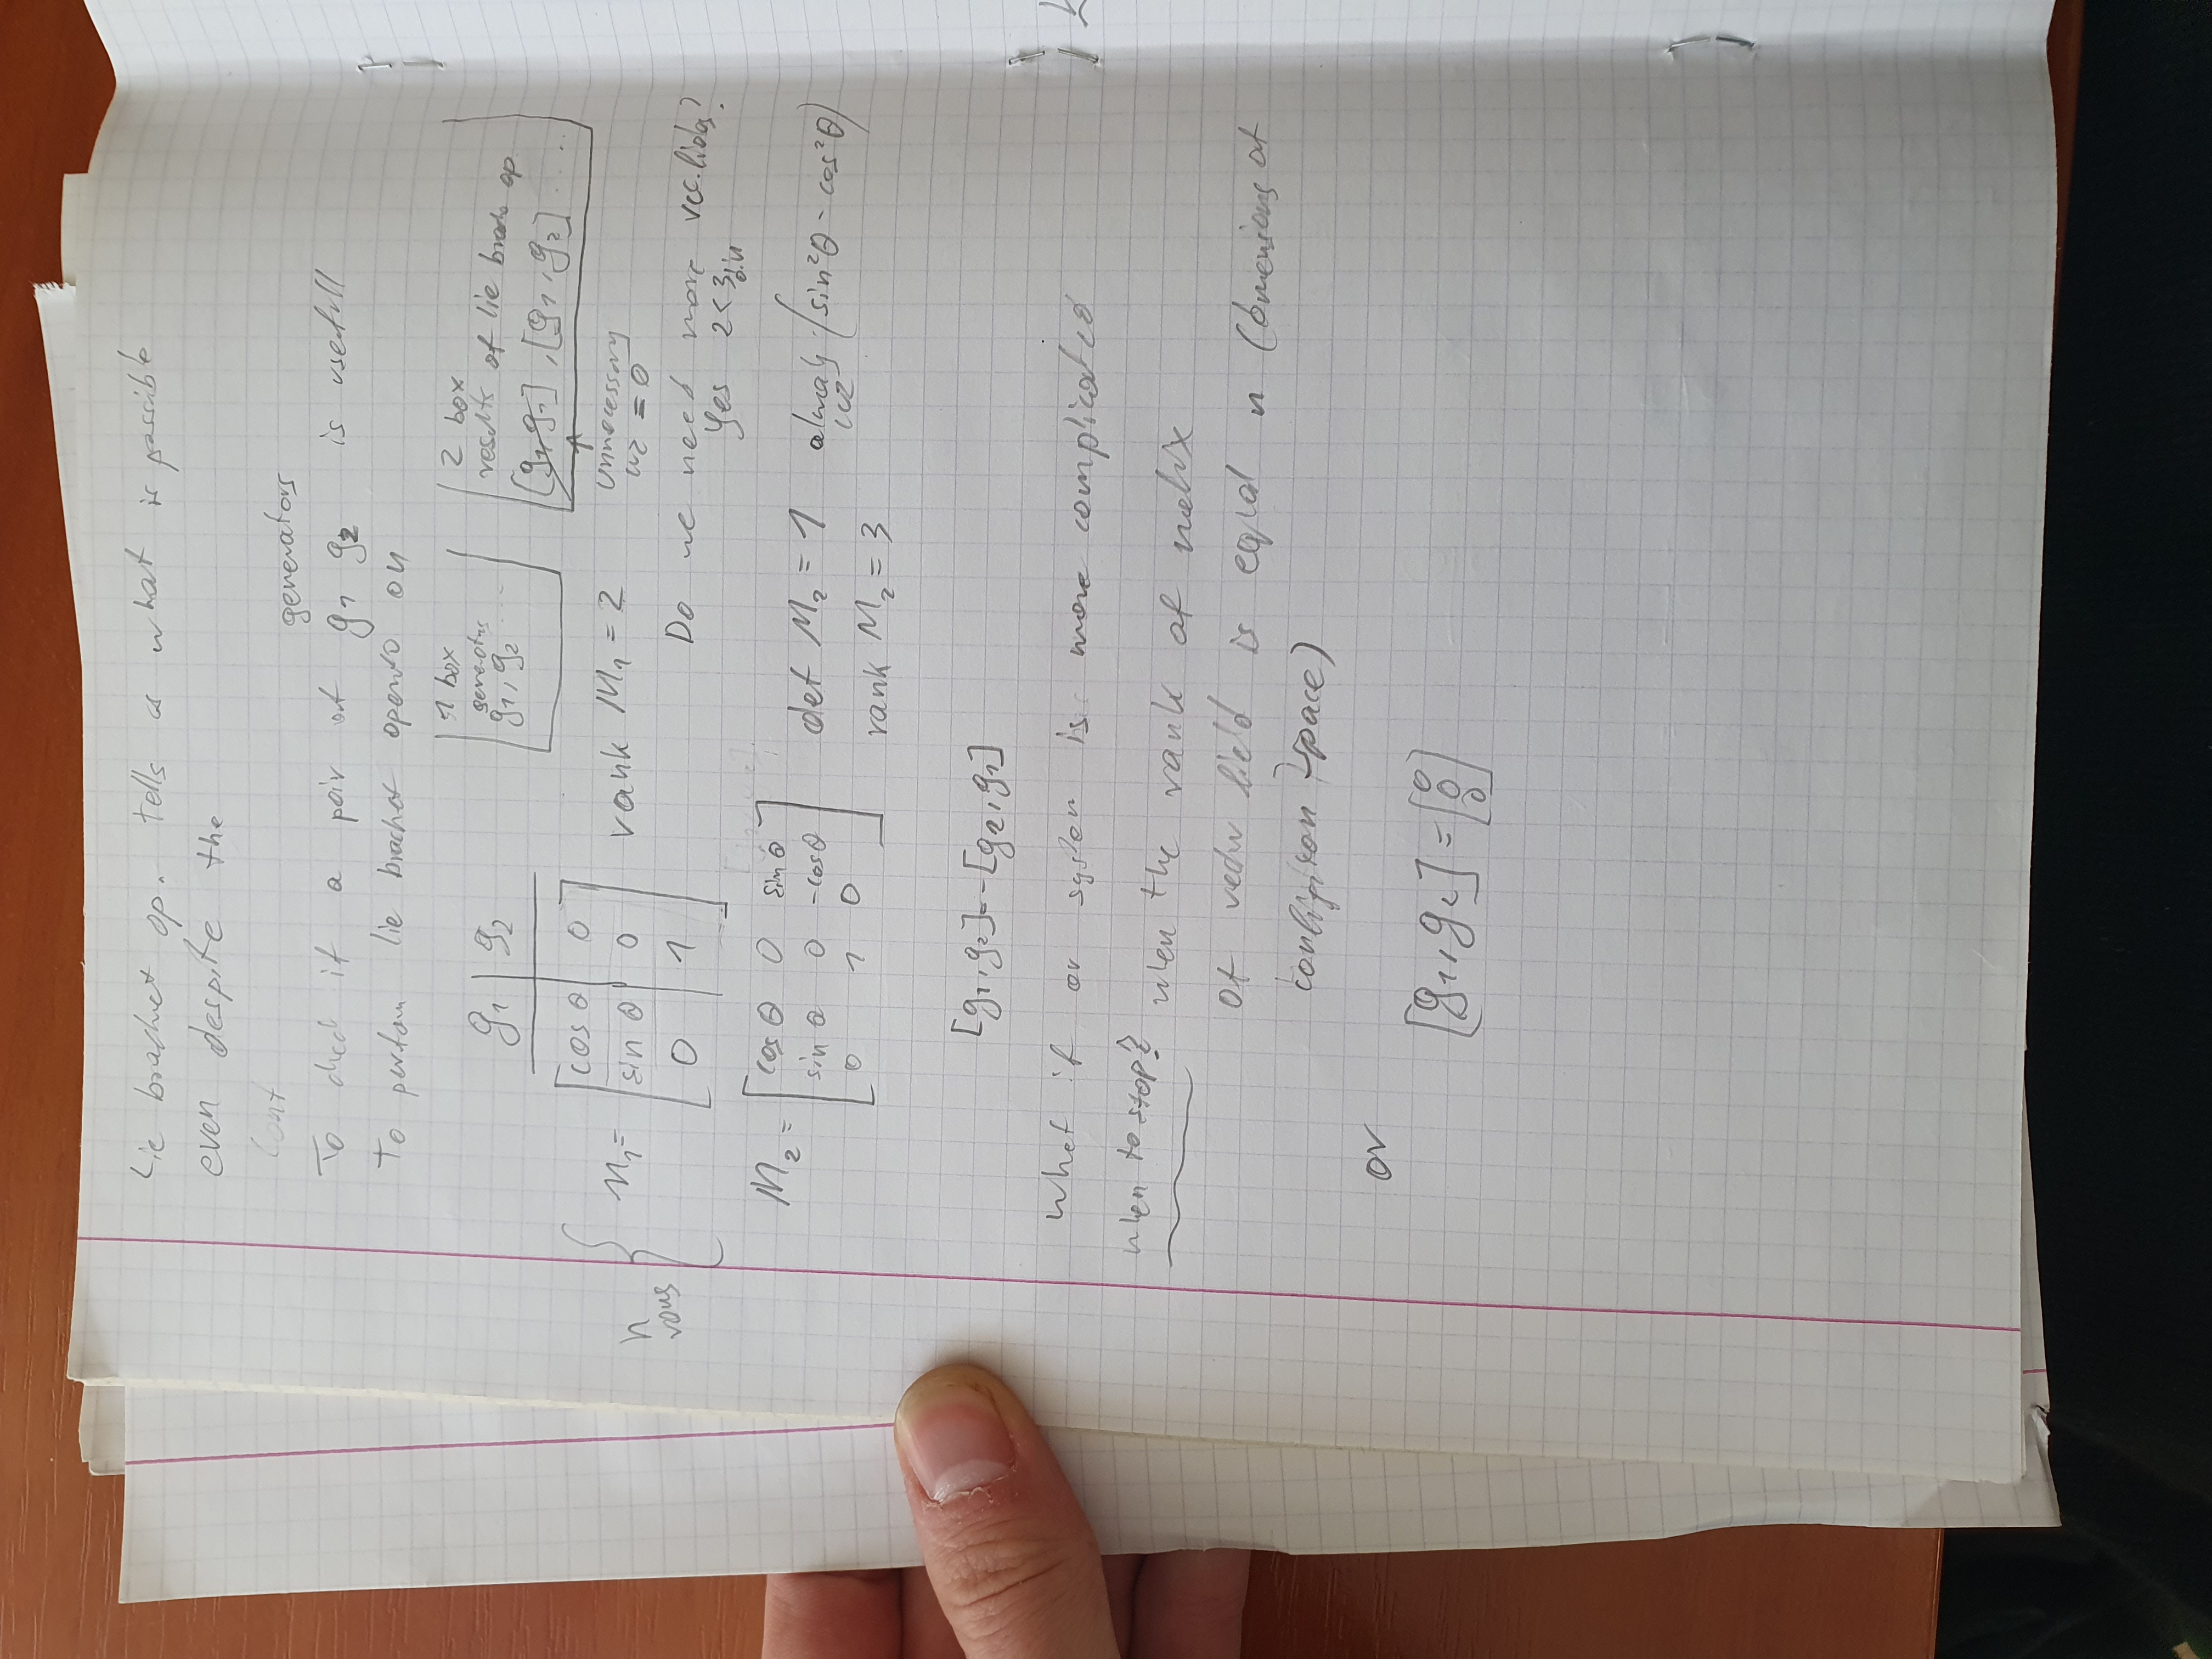 Lie bracket op. tells us what is possible
even despite the
Cont
generators
To check if a pair of g₁ g₂ is usefull
To perform lie bracket operatio on
1 box
generators
g₁, g₂ ...
2 box
results of lie brack op
[g₁, g₁], [g₁, g₂] ....
↑
unnecessary
cuz = 0
g₁ | g₂
n rows { M₁ = [cos θ 0
sin θ 0
0 1]
rank M₁ = 2
Do we need more vec. fields?
Yes 2<3 dim
M₂ = [cos θ 0 sin θ
sin θ 0 -cos θ
0 1 0]
det M₂ = 1 always cuz (sin²θ - cos²θ)
rank M₂ = 3
[g₁, g₂] = -[g₂, g₁]
what if or system is more complicated
when to stop? when the rank of matrix
of vector field is equal n (dimensions of
configuration space)
or
[g₁, g₂] = [0
0
0]